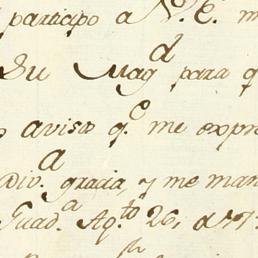 participo a V.E. m
Su Mag.d para q
aviso q.e me expre
Div.a gracia, y me man
Guad.a Ag.to 26, de 177